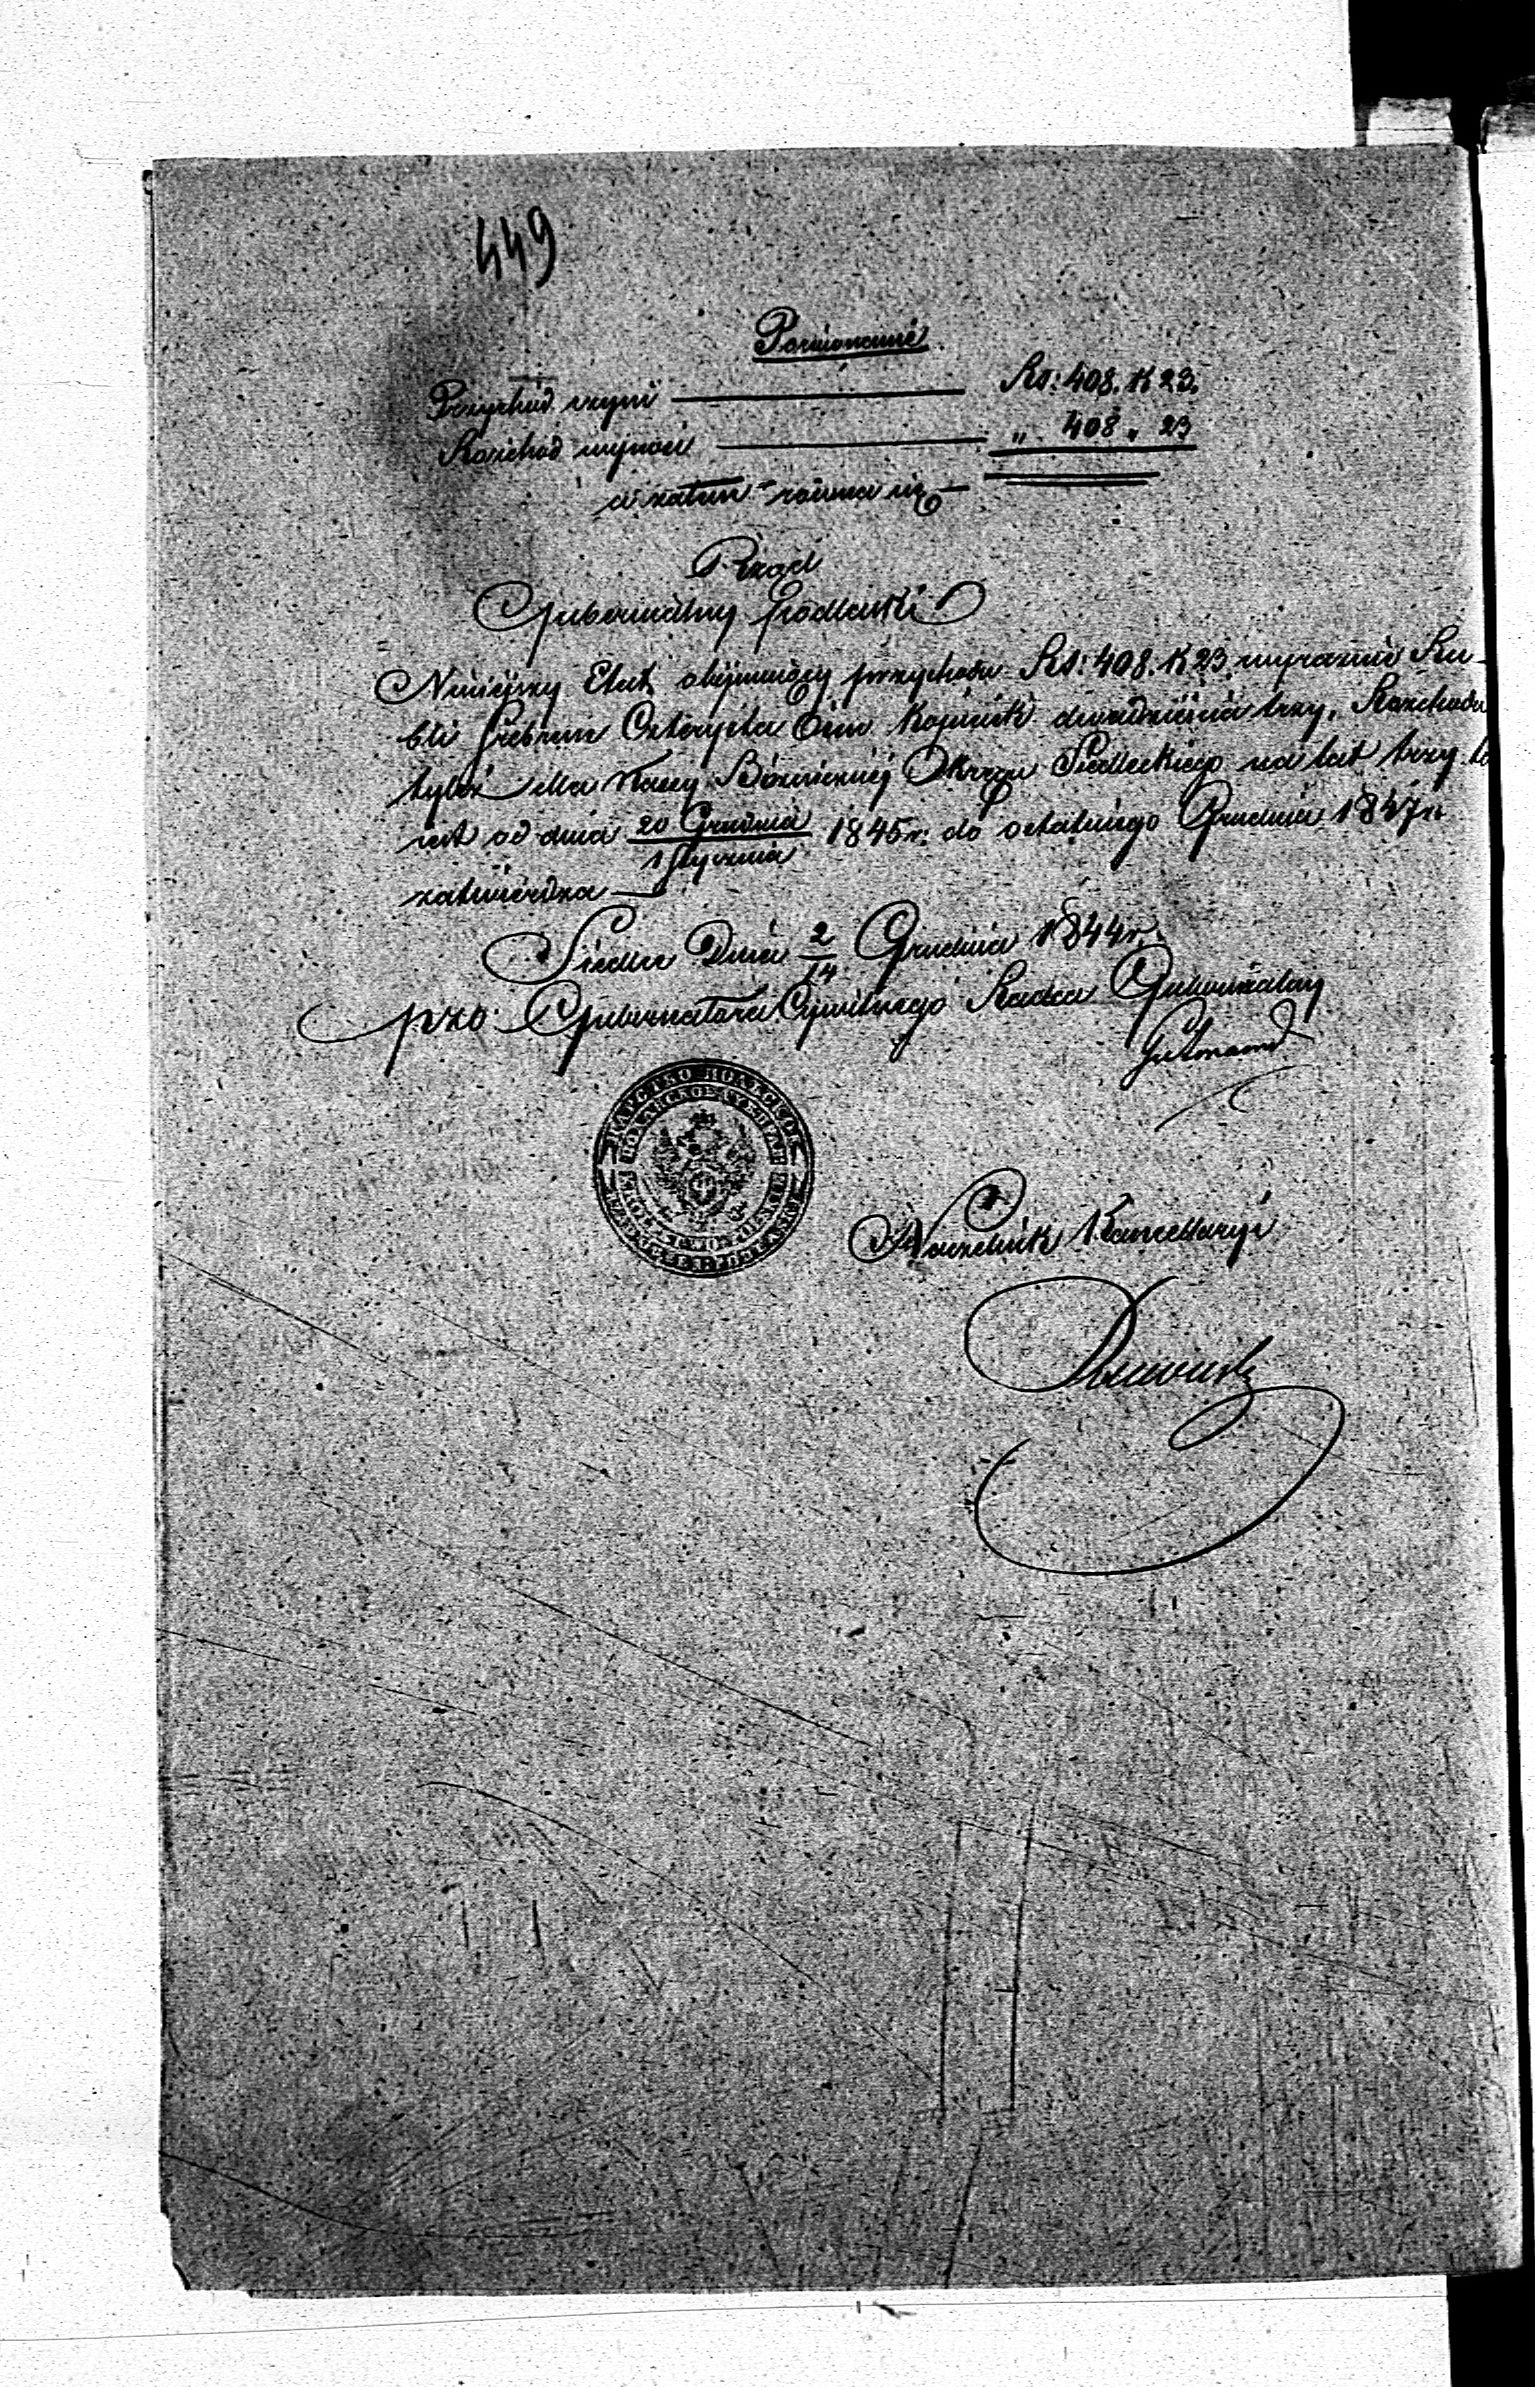 449
Porównanie
Przychód czyni Rs: 408. K 23.
Rozchód wynosi „ 408 „ 23
a zatem równa się
Rząd
Gubernialny Podlaski
Niniejszy Etat obejmujący przychodu Rs: 408. K 23. wyraźnie Ru-
bli Srebrem Czterysta Ośm Kopiejek dwadzieścia trzy, Rozchodu
tyleż dla Kassy Bóżniczney Okręgu Siedleckiego na lat trzy to
jest od dnia 20 Grudnia / 1 Stycznia 1845 r: do ostatniego Grudnia 1847 r.
zatwierdza
Siedlce Dnia 2/14 Grudnia 1844 r.
pzo: Gubernatora Cywilnego Radca Gubernialny
Gutmand
Naczelnik Kancellaryi